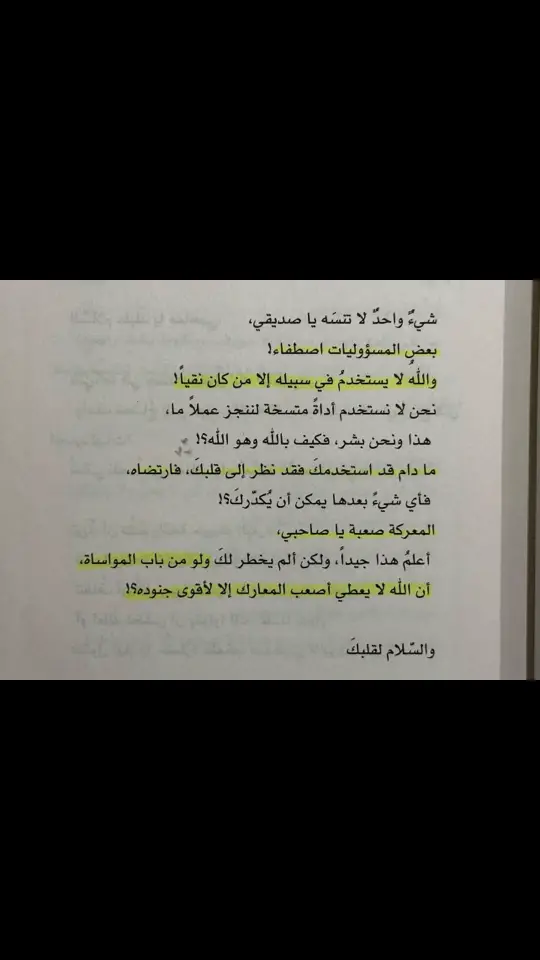 شيءٌ واحدٌ لا تنسَه يا صديقي،
بعضِ المسؤوليات اصطفاء!
والله لا يستخدمُ في سبيله إلا من كان نقياً!
نحن لا نستخدم أداةً متسخة لننجز عملاً ما،
هذا ونحن بشر، فكيف بالله وهو الله؟!
ما دام قد استخدمكَ فقد نظر إلى قلبكَ، فارتضاه،
فأي شيءً بعدها يمكن أن يُكدّركَ؟!
المعركة صعبة يا صاحبي،
أعلمُ هذا جيداً، ولكن ألم يخطر لكَ ولو من باب المواساة،
أن الله لا يعطي أصعب المعارك إلا لأقوى جنوده؟!
والسّلام لقلبكَ